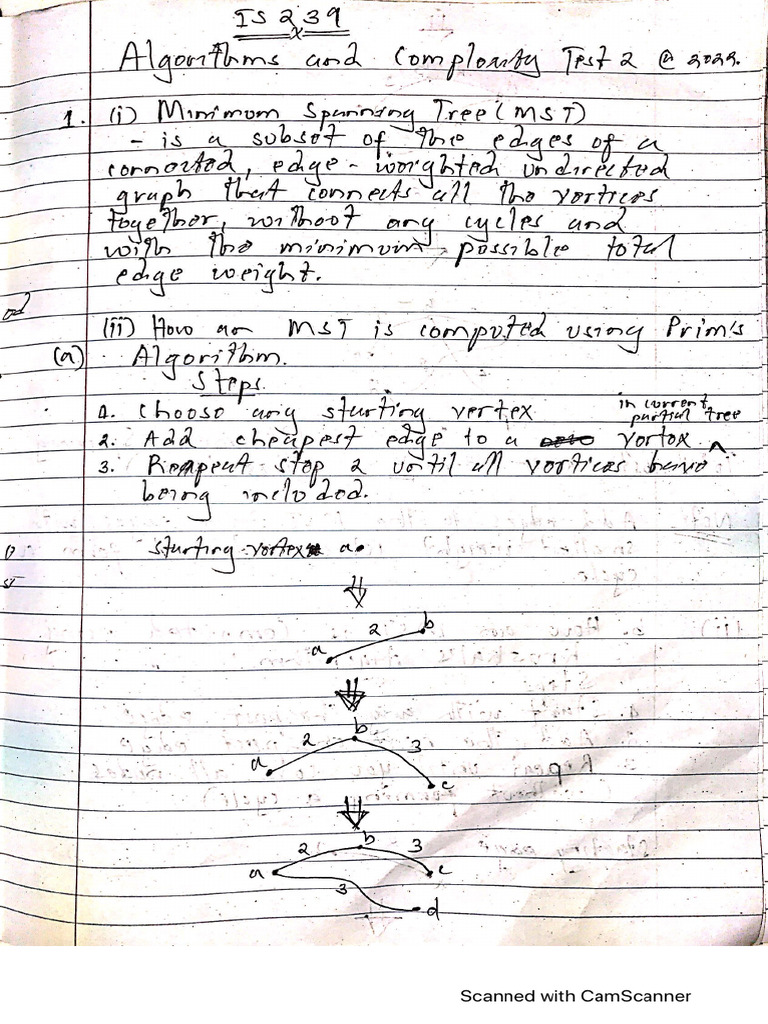 IS 239
Algorithms and Complexity Test 2 @ 2022.
1. (i) Minimum Spanning Tree (MST)
- is a subset of the edges of a
connected, edge-weighted undirected
graph that connects all the vertices
together, without any cycles and
with the minimum possible total
edge weight.
(ii) How an MST is computed using Prim's
(a) Algorithm.
Steps
1. Choose any starting vertex
in current
partial tree
2. Add cheapest edge to a vertex ^
3. Reapeat step 2 until all vertices have
being included.
starting vertex a
b
2
a
b
2 3
a
c
b
2 3
a c
3
d
Scanned with CamScanner